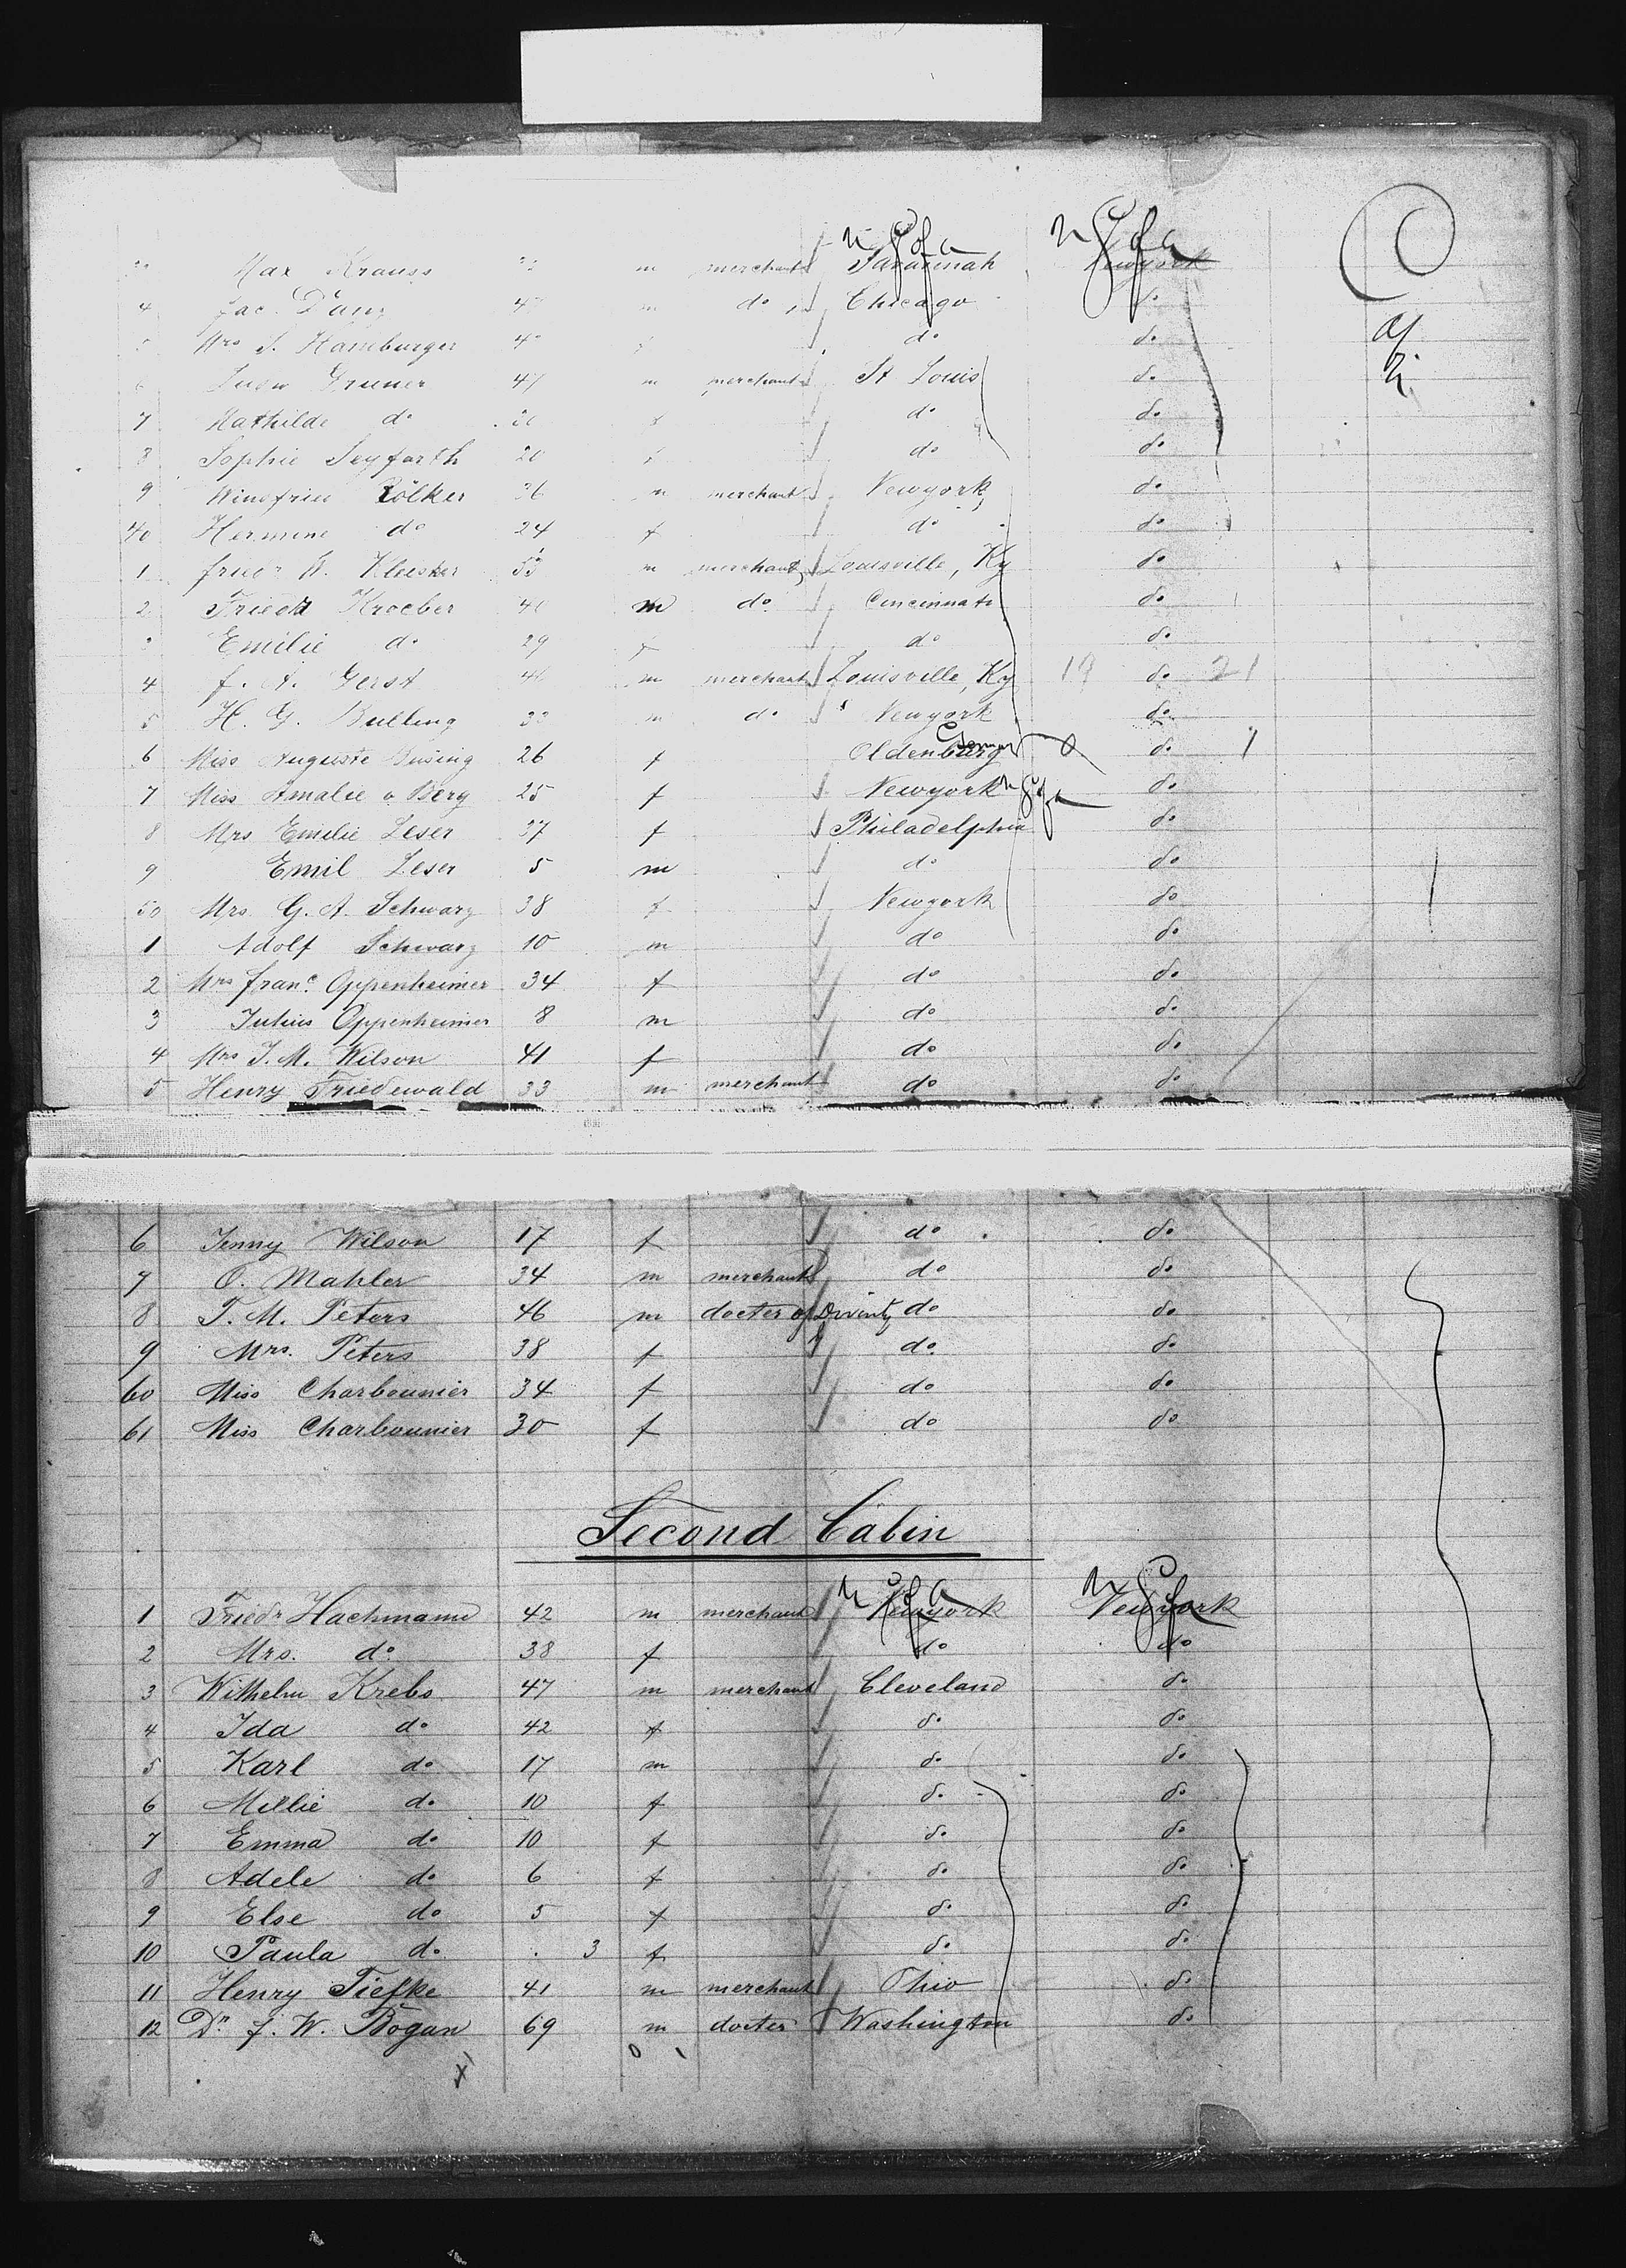 U S of a U S of a
Max Krauss m merchant Savannah Newyork
4 Jac. Danz m do Chicago do
Mrs S. Hamburger f do do
Gruner 47 m merchant St Louis do
7 Mathilde do f do do
8 Sophie Seyfarth 20 f do do
9 Winefried Rölker 36 m merchant Newyork do
40 Hermine do 24 f do do
1 m merchant Louisville, Ky do
2 Friedr Kroeber 40 m do Cincinnati do
Emilie do 29 f do do
4 f. A. Gerst m merchant Louisville, Ky 19 do 21
5 H. G. Bulling m do Newyork do
6 Miss Auguste Büsing 26 f Oldenburg German do 1
7 Miss Amalie v Berg 25 f Newyork U S of a do
8 Mrs Emilie Leser 37 f Philadelphia do
9 Emil Leser 5 m do do
50 Mrs. G. A. Schwarz 38 f Newyork do
1 Adolf Schwarz 10 m do do
2 Mrs franc. Oppenheimer 34 f do do
3 Julius Oppenheimer 8 m do do
4 Mrs J. M. Wilson 41 f do do
5 Henry Friedewald 33 m merchant do do
6 Jenny Wilson 17 f do do
7 O. Mahler 34 m merchant do do
8 T. M. Peters 46 m docter of Divinty do do
9 Mrs. Peters 38 f do do
60 Miss Charbounier 34 f do do
61 Miss Charbounier 30 f do do
Second Cabin
U S of a U S of a
1 Friedr Hachmann 42 m merchant Newyork Newyork
2 Mrs. do 38 f do do
3 Wilhelm Krebs 47 m merchant Cleveland do
4 Ida do 42 f do do
5 Karl do 17 m do do
6 Millie do 10 f do do
7 Emma do 10 f do do
8 Adele do 6 f do do
9 Else do 5 f do do
10 Paula do . 3 f do do
11 Henry Tiefke 41 m merchant Ohio do
12 Dr. f. W. Bogan 69 m docter Washington do